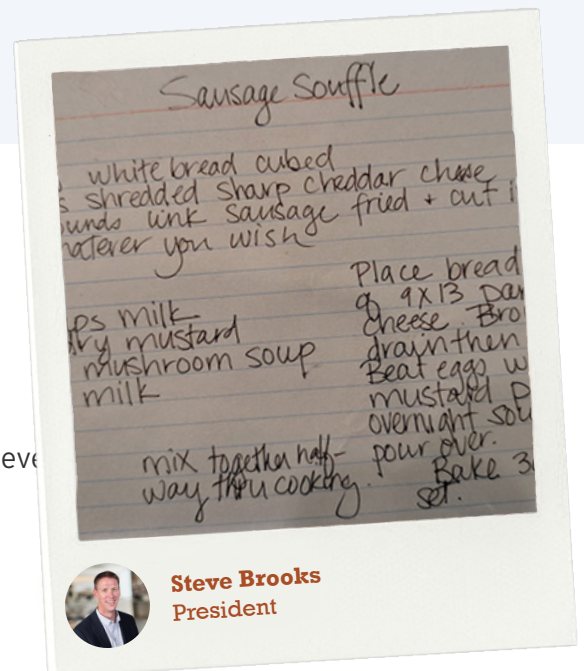 Sausage Souffle
white bread cubed
s shredded sharp cheddar cheese
ounds link sausage fried + cut i
hatever you wish
ps milk
ry mustard
mushroom soup
milk
mix together half-
way thru cooking.
Place bread
9x13 pan
cheese. Bro
drain then
Beat eggs w
mustard P
overnight sou
pour over.
Bake 3
set.
eve
Steve Brooks
President